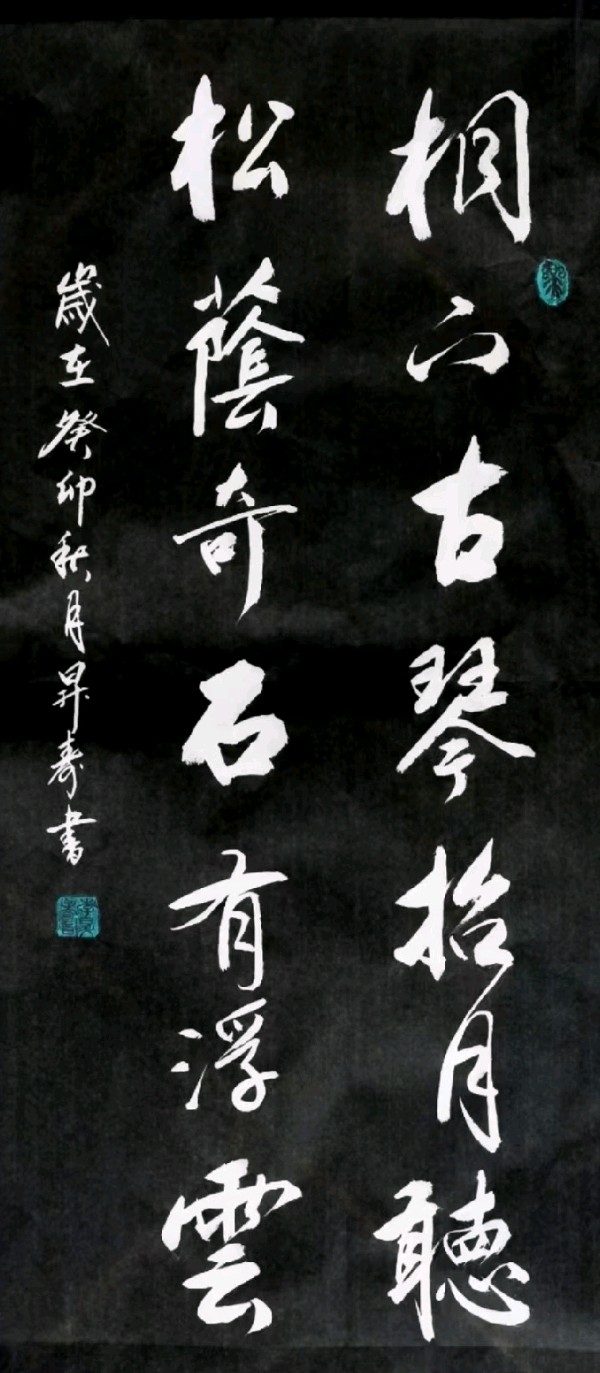 桐下古琴招月聽
松蔭奇石有浮雲
歲在癸卯秋月昇壽書